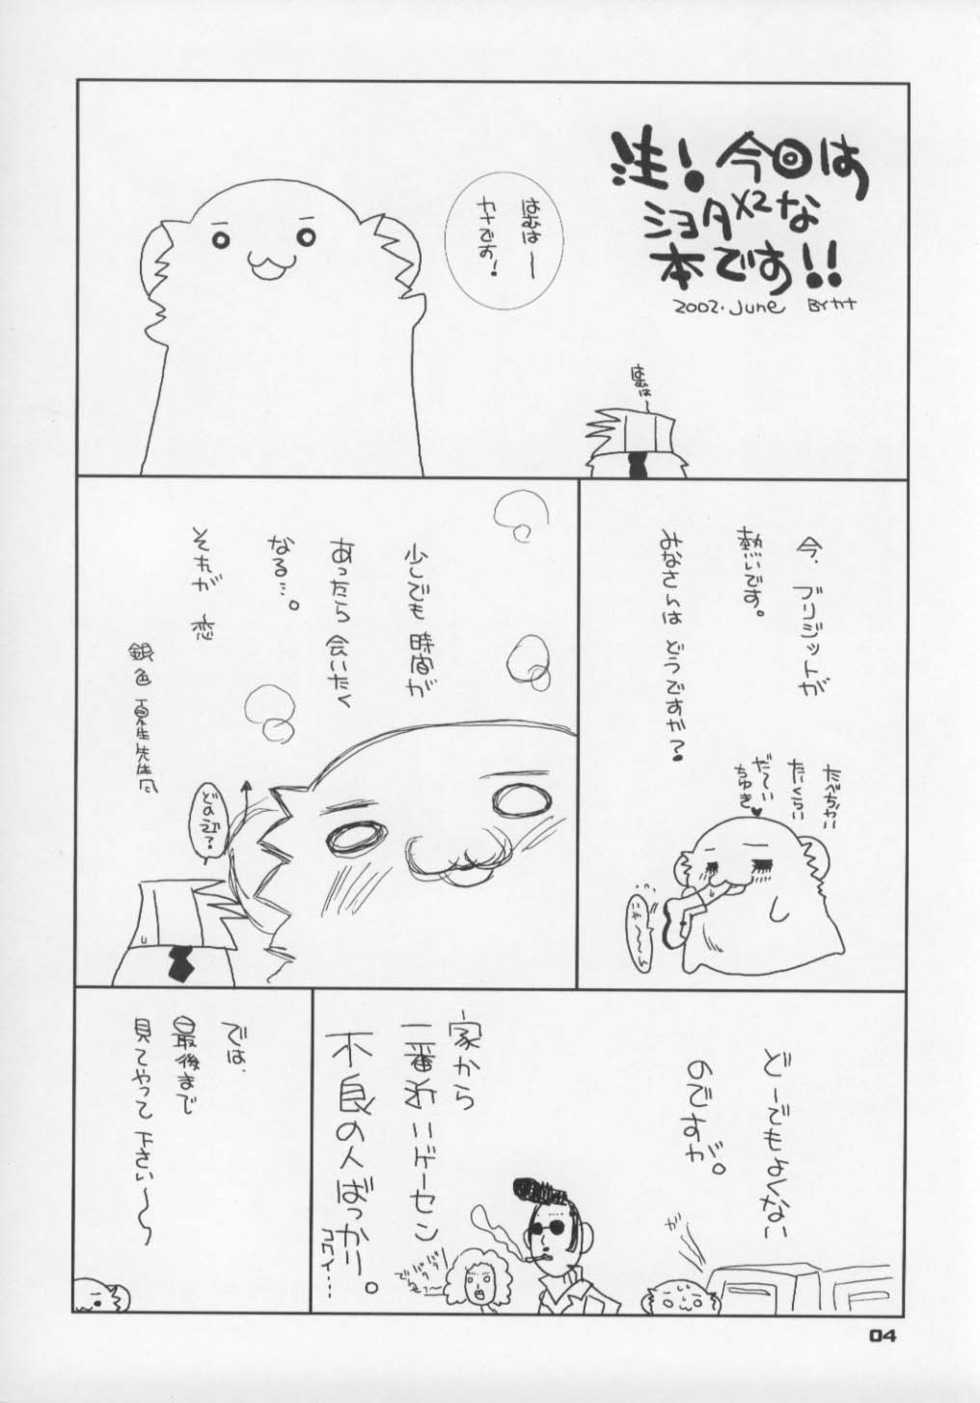 注!今回は
ショタ×2な
本です!!
2002.June BYカナ
はむは〜
カナです!
はむは〜
今、ブリジットが
熱いです。
みなさんは どうですか?
たべちゃい
たーくらい
だ〜い
ちゅき♥
少しでも 時間が
あったら 会いたく
なる…。
それが 〜恋
銀色 夏生先生風
どのジ?
どーでもよくない
のですが。
家から
一番近いゲーセン
不良の人ばっかり。
コワイ…
ガ
では、
最後まで
見てやって 下さい〜〜
04